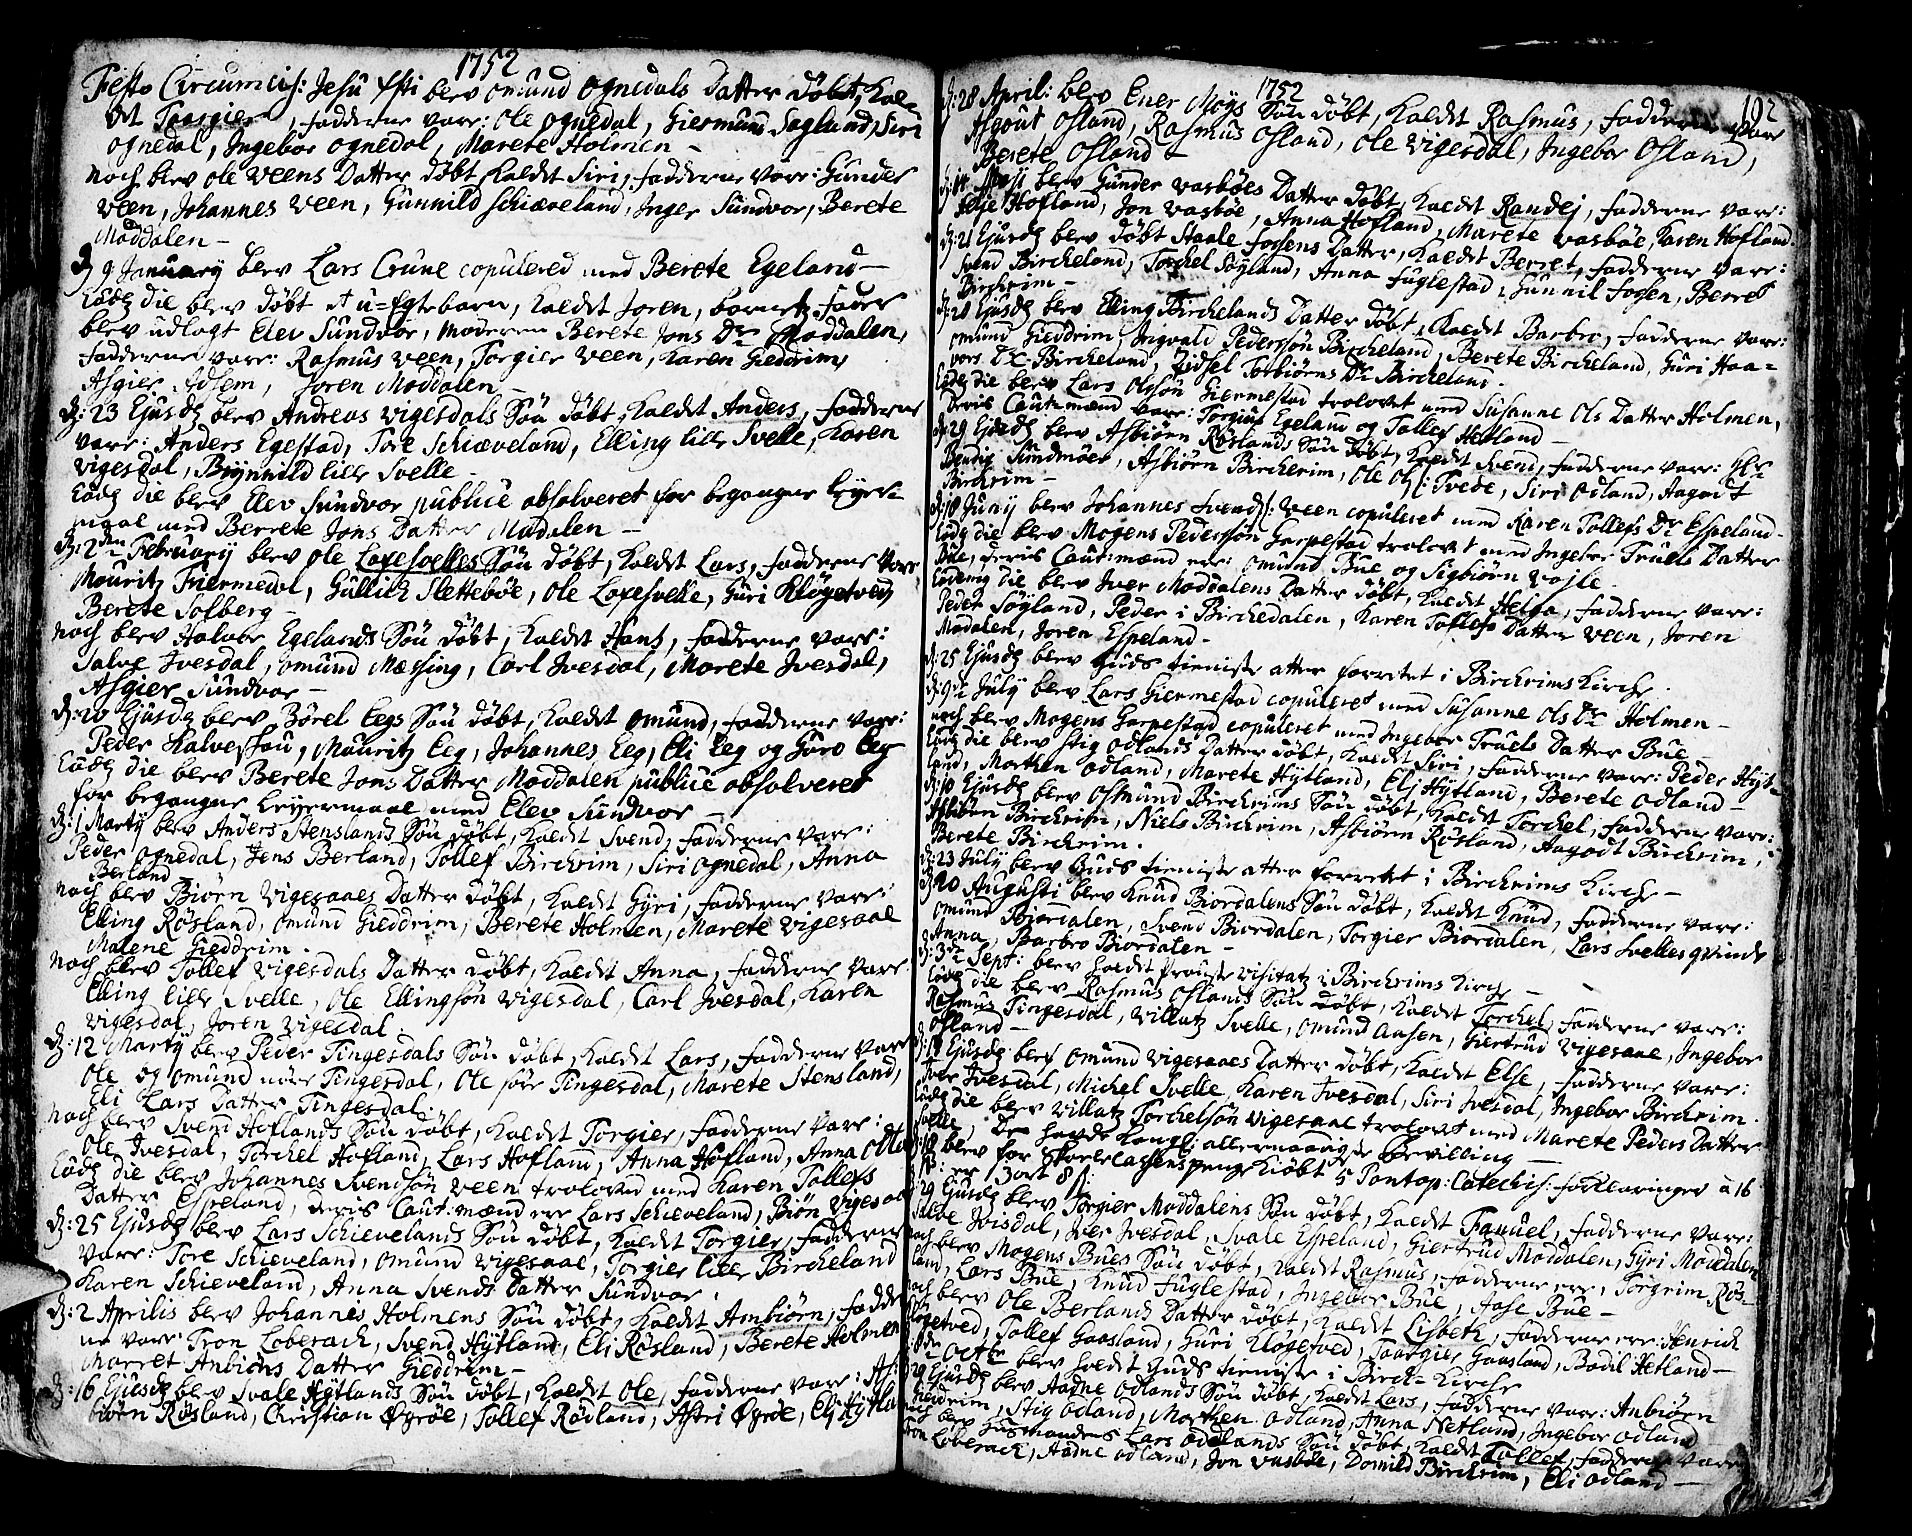 1752
Festo Circumcis: Jesu Xsti blev Omund Ognedals Datter døbt, kal-
det Taargier, fadderne vare: Ole Ognedal, Giermund Sagland, Siri
Ognedal, Ingebor Ognedal, Marete Holmen -
Noch blev Ole Veens Datter døbt kaldet Siri, fadderne vare: Gunder
Veen, Johannes Veen, Gunnild Schiæveland, Inger Sundvor, Berete
Moddalen -
D: 9 January blev Lars Crune copulered med Berete Egeland -
Eodem die blev døbt et u-Egte barn, kaldet Joren, barnets fader
blev udlagt Elev Sundvor, moderen Berete Jons Dr Moddalen,
fadderne vare: Rasmus Veen, Torgier Veen, Karen Gieddrim,
Asgier Adsem, Joren Moddalen -
D: 23 Ejusdem blev Andreas Vigesdals Søn døbt, kaldet Anders, fadderne
vare: Anders Egestad, Tore Schiæveland, Elling lille Svelle, Karen
Vigesdal, Brynnild lille Svelle -
Eodem die blev Elev Sundvor publice absolveret for begangne leyer-
maal med Berrete Jons Datter Madalen -
D: 2den February blev Ole Laxesvelles Søn døbt, kaldet Lars, fadderne vare
Mauritz Fiermedal, Gullich Slettebøe, Ole Laxesvelle, Guri Kløgetvedt
Berete Solberg -
Noch blev Halvor Egelands Søn døbt, kaldet Hans, fadderne vare:
Salve Ivesdal, Omund Mæssing, Carl Ivesdal, Marete Ivesdal,
Asgier Sundvor -
D: 20 Ejusdem blev Børel Eegs Søn døbt, kaldet Omund, fadderne vare:
Peder Halvorsson, Mauritz Eeg, Johannes Eeg, Eli Eeg og Guro Eeg
Eodem die blev Berete Jons Datter Moddalen publice absolveret
for begangne leyermaal med Elev Sundvor -
D: 1 Marty blev Anders Stenslands Søn døbt, kaldet Svend, fadderne vare:
Peder Ognedal, Jens Berland, Tollef Birchrim, Siri Ognedal, Anna
Berland
Noch blev Biørn Vigesaaes Datter døbt, kaldet Gyri, fadderne vare:
Elling Røsland, Omund Gieddrim, Berete Holmen, Marete Vigesaae
Malene Gieddrim.
Noch blev Tollef Vigesdals Datter døbt, kaldet Anna, fadderne vare
Elling lille Svelle, Ole Ellingsøn Vigesdal, Carl Ivesdal, Karen
Vigesdal, Joren Vigesdal.
D: 12 Marty blev Peder Tingesdals Søn døbt, kaldet Lars, fadderne vare
Ole og Omund nøre Tingesdal, Ole søre Tingesdal, Marete Stensland,
Eli Lars Datter Tingesdal.
Noch blev Svend Hoflands Søn døbt, kaldet Torgier, fadderne vare:
Ole Ivesdal, Torchel Hofland, Lars Hofland, Anna Hofland, Anna
Eodem die blev Johannes Svendsøn Veen trolovet med Karen Tollefs
Datter Espeland, deris Caut:mænd ere Lars Schieveland, Biøn Vigesaa
D: 25 Ejusdem blev Lars Schievelands Søn døbt, kaldet Torgier, fadderne
vare: Tore Schieveland, Omund Vigesaae, Torgier lille Bircheland
Karen Schieveland, Anna Svends Datter Sundvor.
D: 2 Aprilis blev Johannes Holmens Søn døbt, kaldet Ambiørn, fadder-
ne vare Tron Loberach, Svend Hytland, Eli Røsland, Berete Holmen
Marret Anbiøns Datter Gieddrem -
D: 16 Ejusdem blev Svale Hytlands Søn døbt, kaldet Ole, fadderne vare: As-
biørn Røsland, Christian Øgrøe, Tollef Rødland, Astri Øgrøe, Eli Hytland
1752
102
D: 28 April: blev Ener Møys Søn døbt, kaldet Rasmus, fadderne vare
Asgout Osland, Rasmus Osland, Ole Vigesdal, Ingebor Osland,
Berete Osland -
D: 11 Maji blev Gunder Vasbøes Datter døbt, kaldet Randej, fadderne vare:
Hofland, Jon Vasbøe, Anna Hofland, Marete Vasbøe, Karen Hofland.
D: 21 Ejusdem blev døbt Staale Fossens Datter, kaldet Berret, fadderne vare:
Svend Bircheland, Torchel Søyland, Anna Fuglestad, Gunnil Fossen, Berret
Birchrim -
D: 28 Ejusdem blev Elling Birchelands Datter døbt, kaldet Barbro, fadderne vare:
Omund Gieddrim, Ingvald Pedersøn Bircheland, Berete Bircheland, Guri Haa-
vors Dr Bircheland, Zidsel Torbiørns Dr Bircheland.
Eodem die blev Lars Olsøn Giermestad trolovet med Susanne Ols Datter Holmen,
Deris Caut:mænd vare: Torgius Egeland og Tollef Hetland -
D: 29 Ejusdem blev Asbiørn Røslands Søn døbt, kaldet Svend, fadderne vare: Hr
Bendix Sundmøer, Asbiørn Birchrim, Ole Ols: Tvede, Siri Odland, Aagodt
Birchrim -
D: 18 Juny blev Johannes Svends: Veen copuleret med Karen Tollefs Dr Espeland -
Eodem die blev Mogens Pedersøn Garpestad trolovet med Ingebor Truels Datter
Bue, deris Caut:mænd ere: Omund Bue og Sigbiørn Vasle.
Eodem die blev Iver Moddalens Datter døbt, kaldet Helga, fadderne vare:
Peder Søyland, Peder i Birchedalen, Karen Tollefs Datter Veen, Joren
Modalen, Joren Espeland -
D: 25 Ejusdem blev Guds tieniste atter forretet i Birchrims Kirche.
D: 9de July blev Lars Giermestad copuleret med Susanne Ols Dr Holmen -
noch blev Mogens Garpestad copuleret med Ingebor Truels Datter Bue -
Eodem die blev Stig Odlands Datter døbt, kaldet Siri, fadderne vare: Peder Hyt-
land, Morthen Odland, Marete Hytland, Elj Hytland, Berete Odland -
D: 10 Ejusdem blev Osmund Birchrims Søn døbt, kaldet Torchel, fadderne vare:
Asbiørn Birchrim, Niels Birchrim, Asbiørn Røsland, Aagodt Birchrim,
Berete Birchrim.
D: 23 July blev Guds tieniste atter forretet i Birchrims Kirche -
D: 20 Augusti blev Knud Biordalens Søn døbt, kaldet Knud, fadderne vare:
Omund Biordalen, Svend Biordalen, Torgier Biordalen, Lars Svelles qvinde
Anna, Barbro Biordalen -
D: 3de Sept: blev holdt Provste Visitatz i Birchrims Kirche -
Eodem die blev Rasmus Oslands Søn døbt, kaldet Torchel, fadderne vare:
Rasmus Tingesdal, Villatz Svelle, Omund Aasen, Giertrud Vigesaae, Ingebor
Osland -
Ejusdem blev Omund Vigesaaes Datter døbt, kaldet Else, fadderne vare:
Iver Ivesdal, Michel Svelle, Karen Ivesdal, Siri Ivesdal, Ingebor Birchrim.
Eodem die blev Villatz Torchelsøn Vigesaae trolovet med Marete Peders Datter
Svelle, De havde Kongl: allernaadigste Bevilling -
blev for Skolecassens penge kiøbt 5 Pontop: Catechis: forklaringer a 16
er 3 ort 8 s:
29 Ejusdem blev Torgier Moddalens Søn døbt, kaldet Fanuel, fadderne vare:
Salve Ivisdal, Iver Ivesdal, Svale Espeland, Giertrud Moddalen, Gyri Moddalen
noch blev Mogens Bues Søn døbt, kaldet Rasmus, fadderne ere, Torgrim Røs-
land, Lars Bue, Knud Fuglestad, Ingebor Bue, Aase Bue -
noch blev Ole Berlands Datter døbt, kaldet Lisbeth, fadderne ere: Henrich
Kløgetved, Tollef Gaasland, Guri Kløgetved, Taargier Gaasland, Bodil Hetland -
Octbr blev holdt Guds tieniste i Birch- Kirche
29 Ejusdem blev Aadne Odlands Søn døbt, kaldet Lars, fadderne vare: Anbiørn
Gieddrim, Stig Odland, Morthen Odland, Anna Netland, Ingebor Odland
noch blev Husmandens Lars Odlands Søn døbt, kaldet Tollef, fadderne vare
Tron Loberach, Aadne Odland, Jon Vasbøe, Domild Birchrim, Eli Odland -